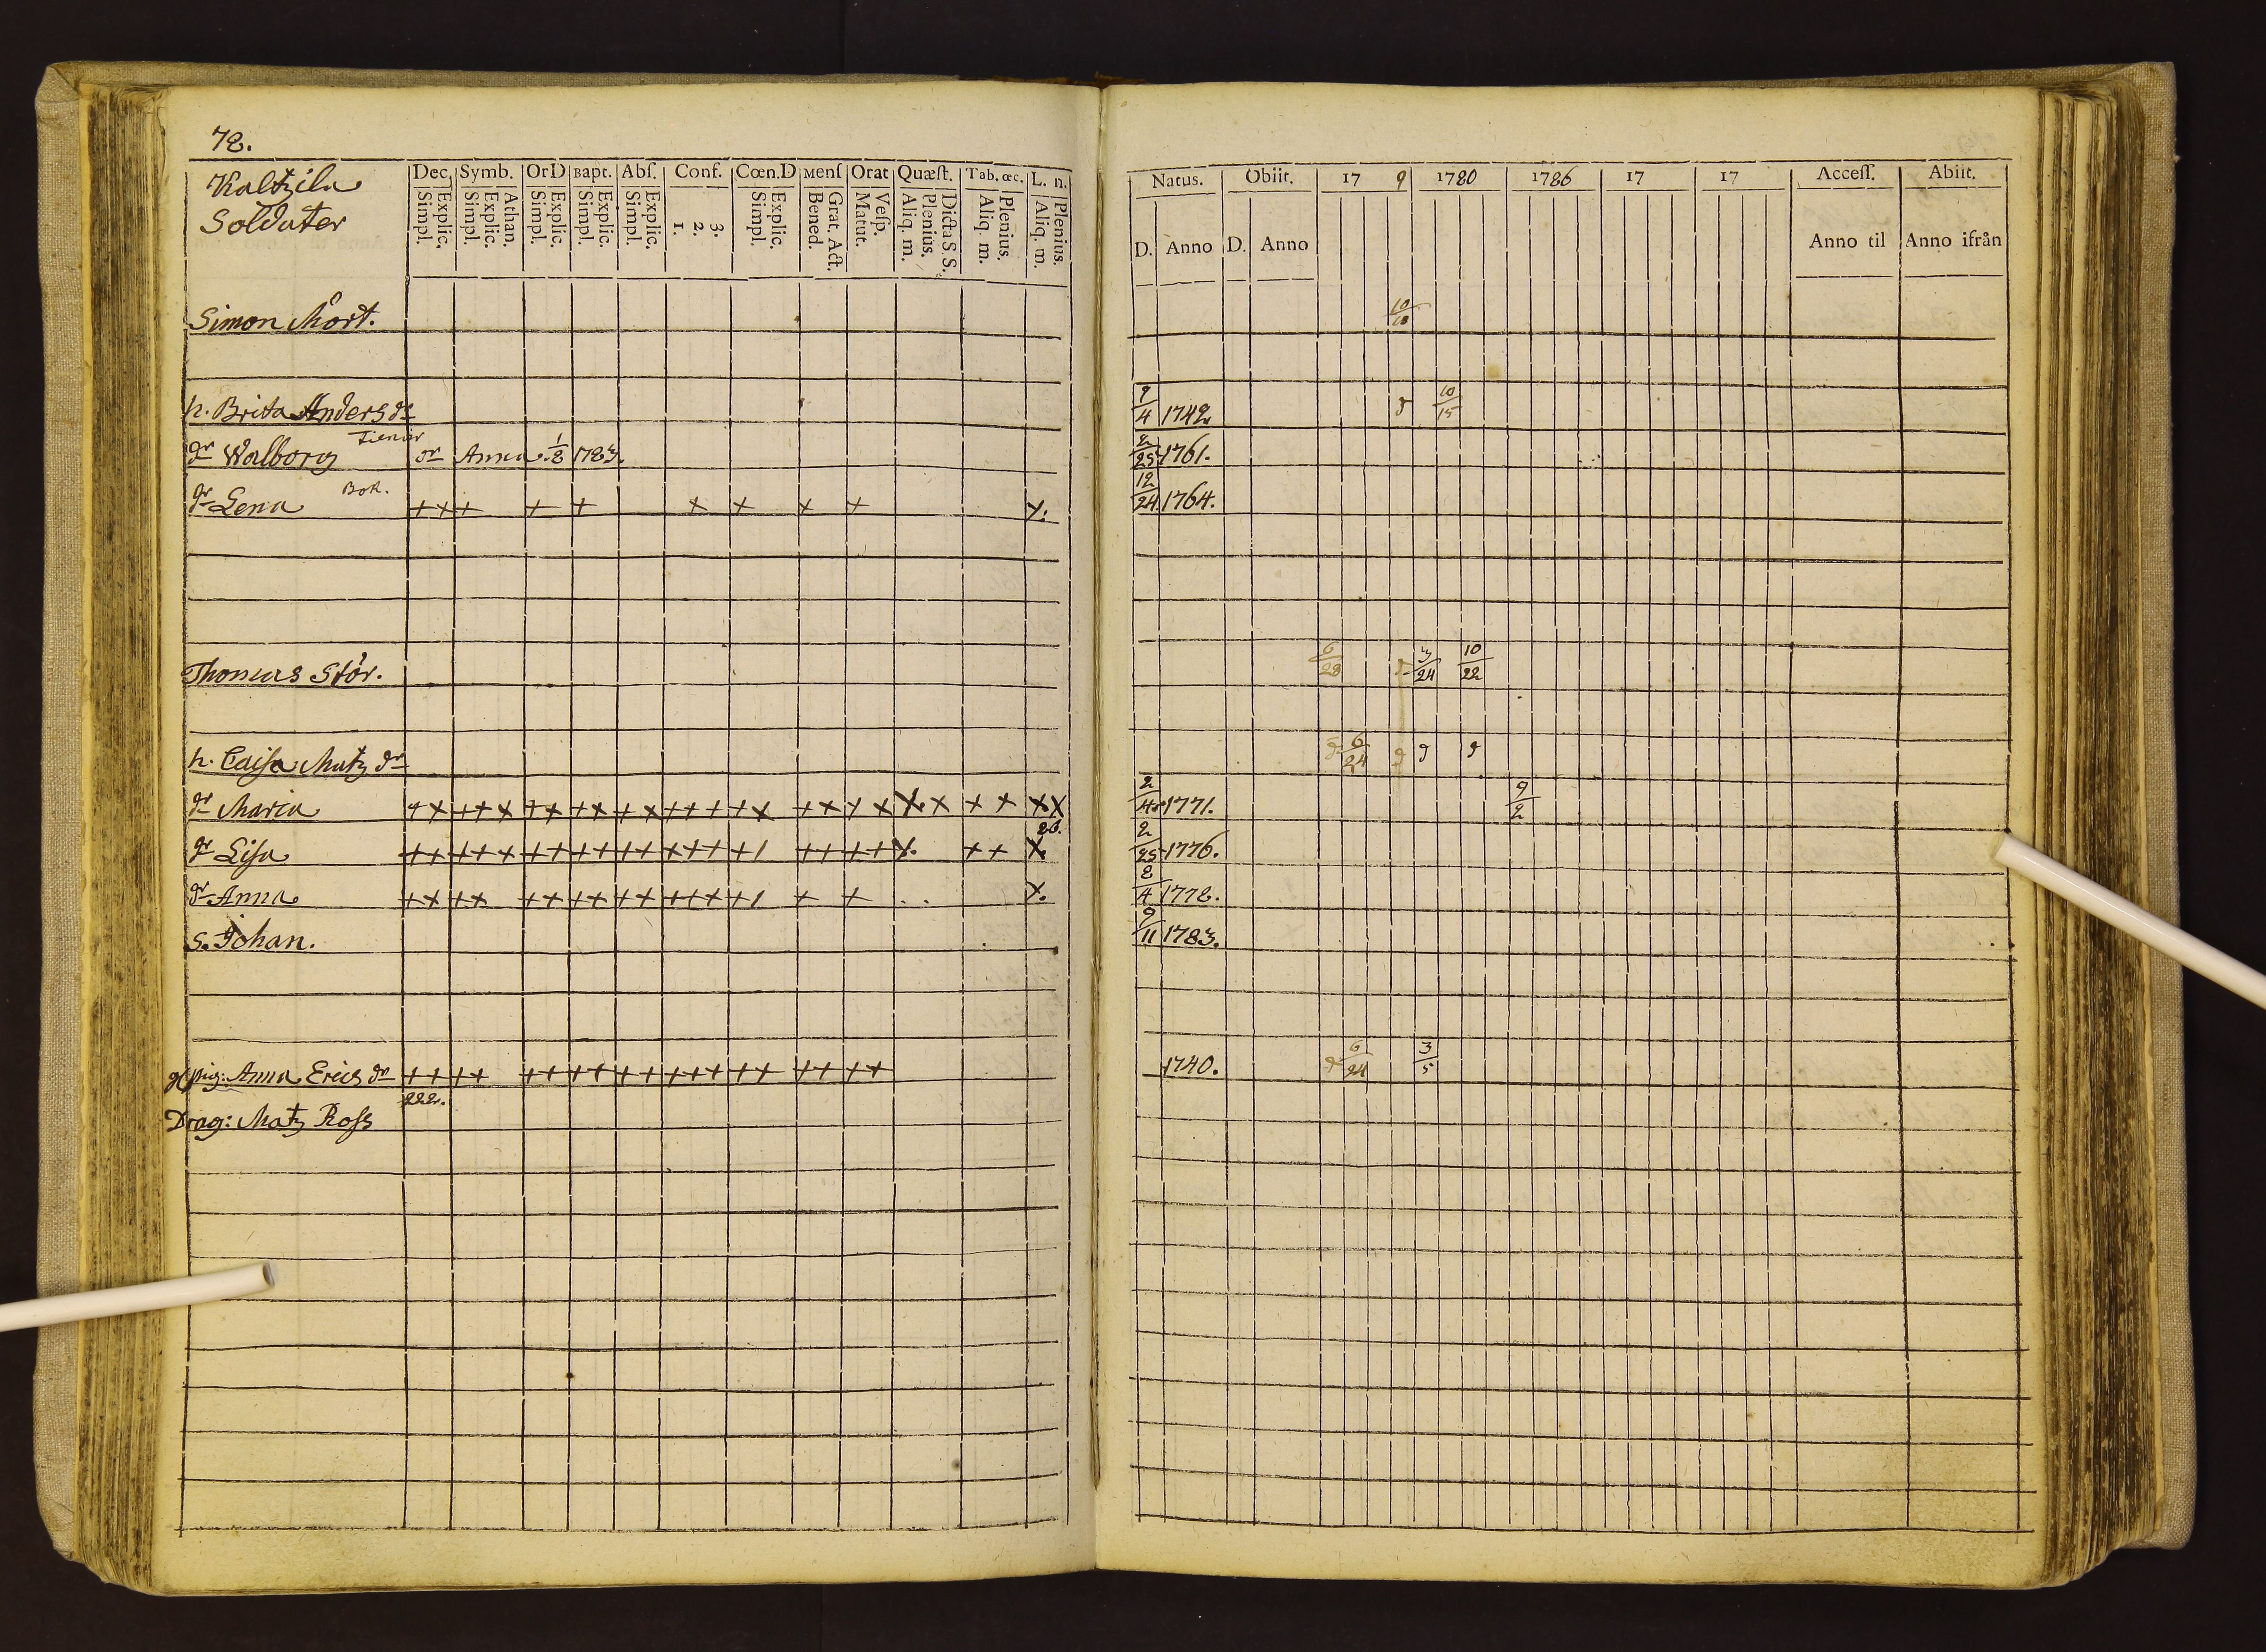 78.
Kaltzila
Soldater
Dec. Symb. OrD Bapt. Abſ. Conf. Cœn.D Menſ Orat Quæſt. Tab. œc. L. n.
Explic. Simpl. Athan. Explic. Simpl. Explic. Simpl. Explic. Simpl. Explic. Simpl. 3. 2. 1. Explic. Simpl. Grat. Act. Bened. Veſp. Matut. Dicta S. S. Plenius. Aliq. m. Plenius. Aliq. m. Plenius. Aliq. m.
Simon Mört.
h. Brita Anders dr
dr Walborg Tienar dr Anna 1/8 1783.
dr Lena Bok. + + + + + + + + + x.
Thomas Stör.
h. Caisa Matz dr
dr Maria + x + + x + x + x + x + + + + x + + + x x. x + + x x
26.
dr Lisa + + + + + + + + + + + + + + + / + + + + x. + + x.
dr Anna + + + + + + + + + + + + + + / + + x.
s. Johan.
Anna Erics dr + + + + + + + + + + + + + + + + + + +
222.
Drag: Matz Ross
Natus. Obiit. 17 9 1780 1786 17 17 Acceſſ. Abiit.
D. Anno D. Anno Anno til Anno ifrån
10
9/4 1742 10/15
2/25 1761.
12/24 1764.
6/28 3/24 10/22
6/24
2/4 1771. 9/2
2/25 1776.
2/4 1778.
9/11 1783.
1740. 6/24 3/5